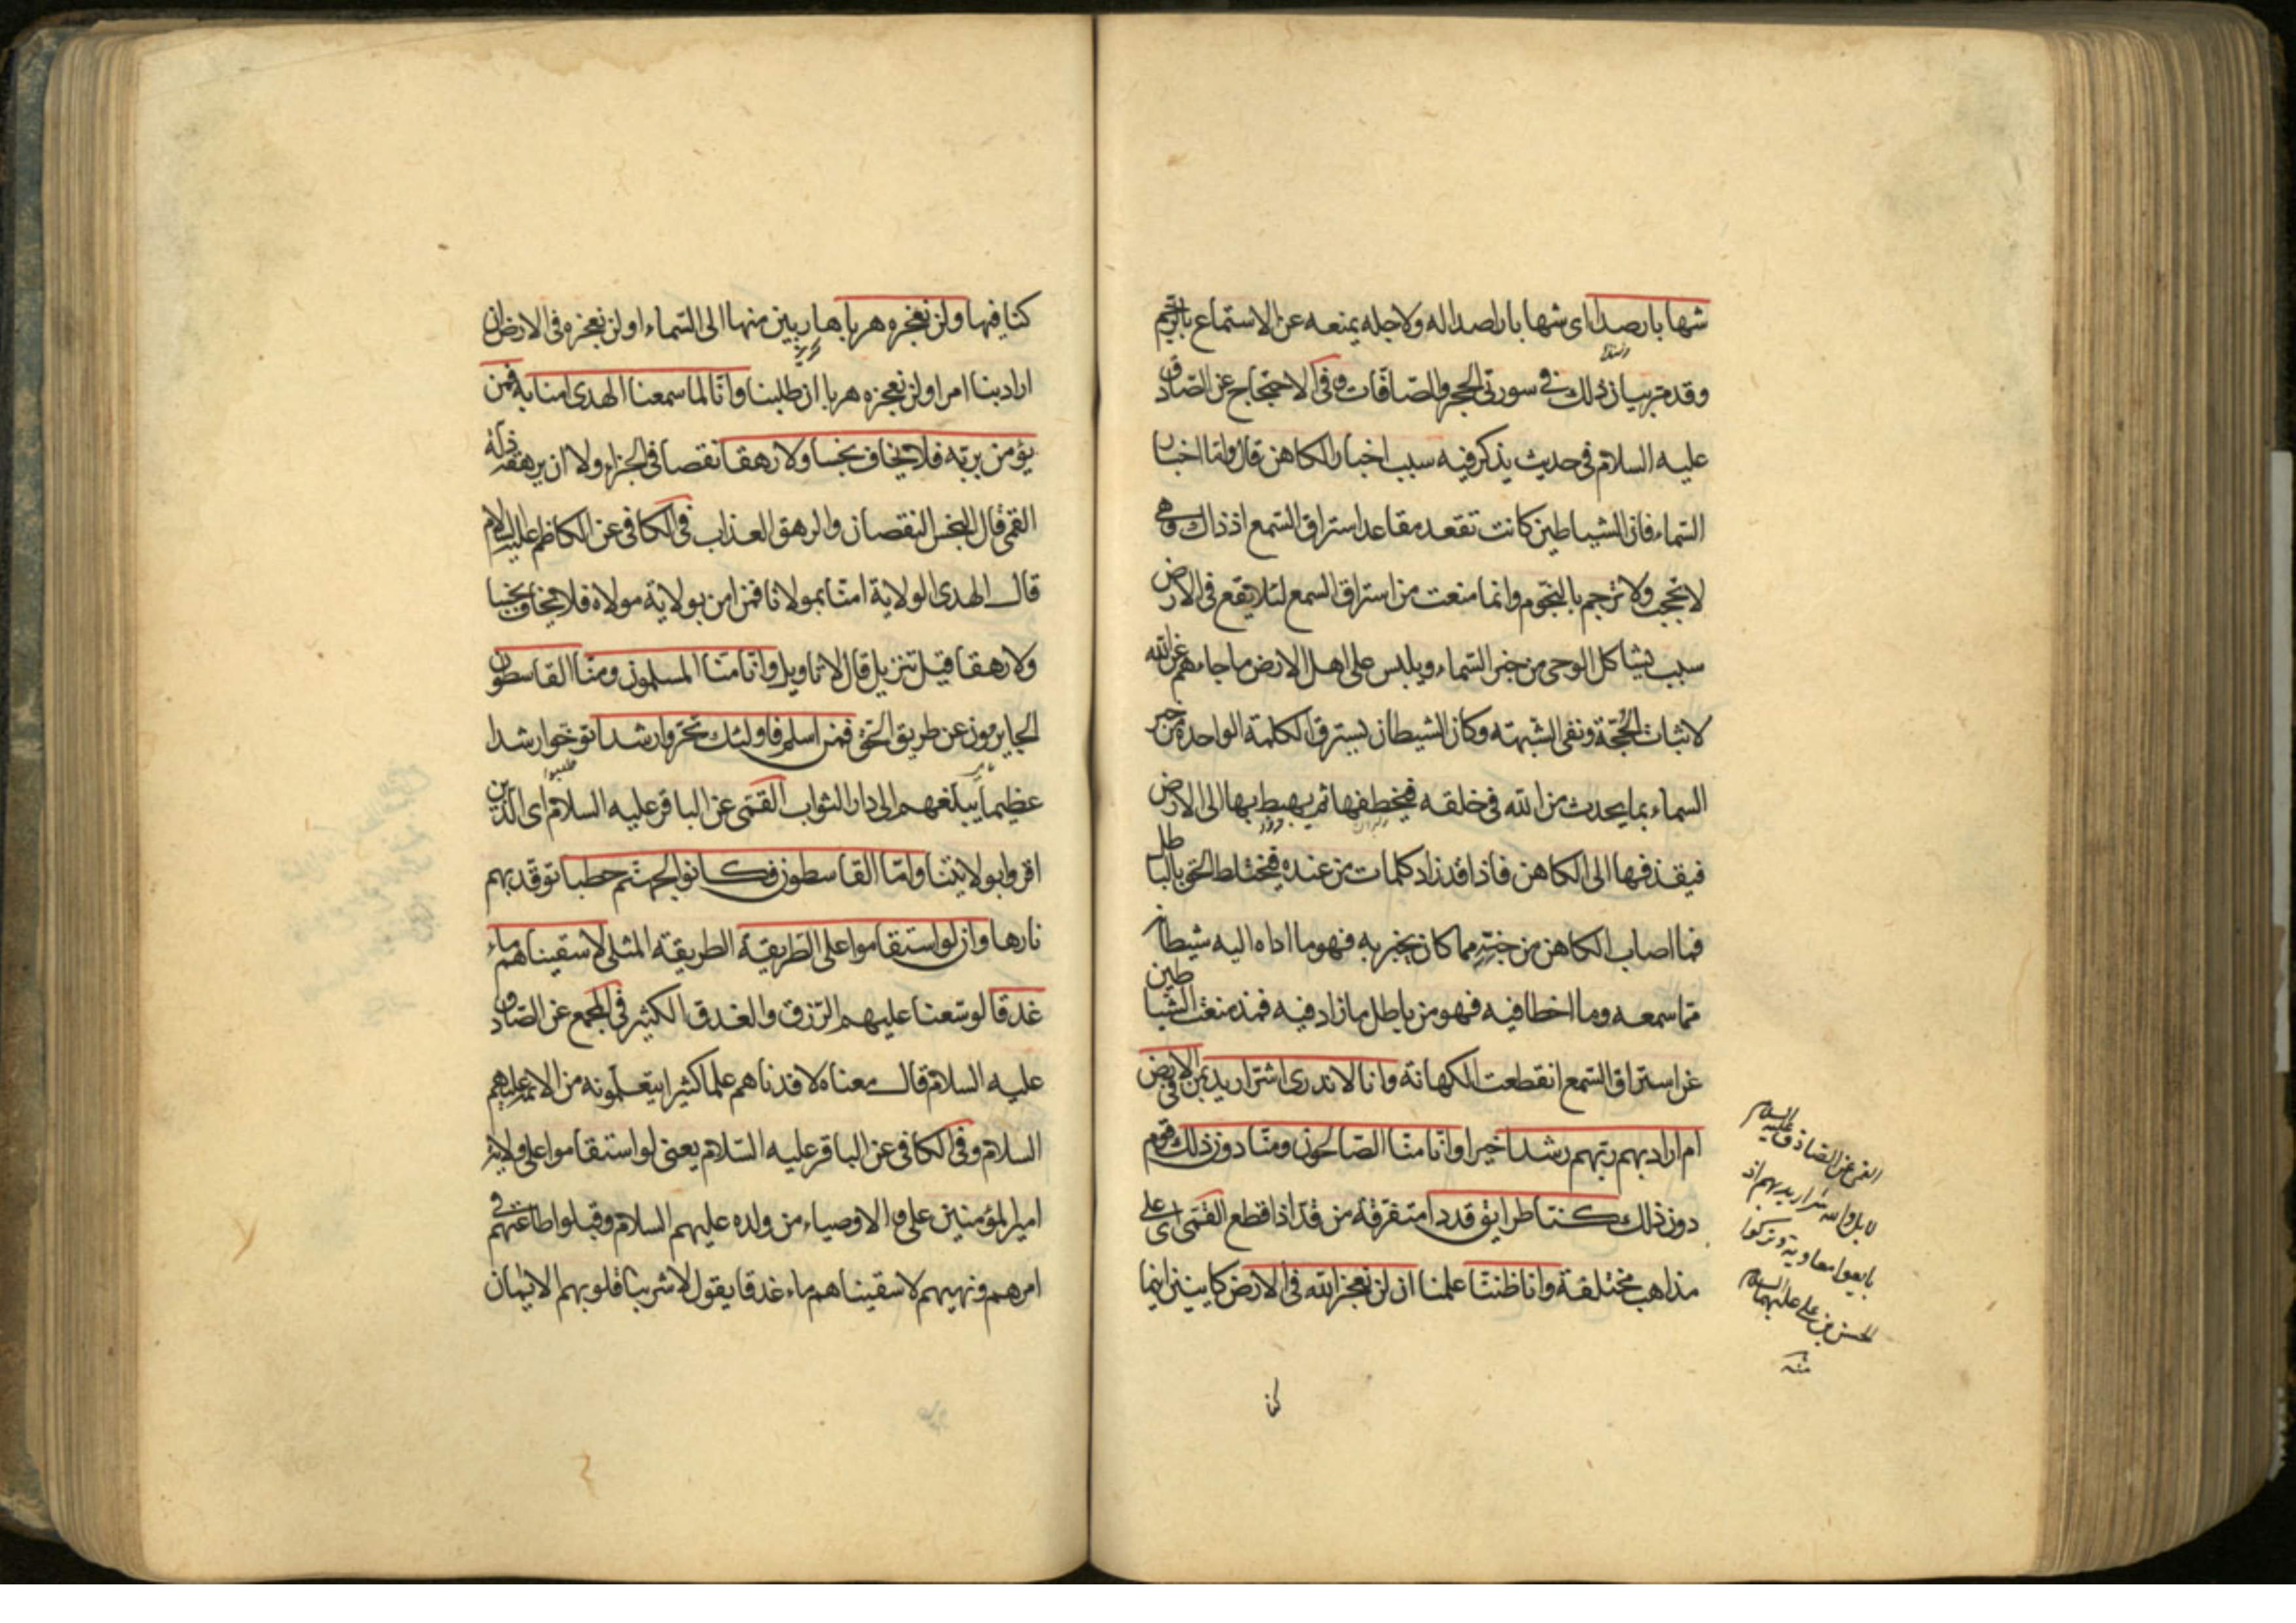 شهابا رصدا اى شهابا راصدا له ولاجله يمنعه عن الاستماع بالرجم
وقد مر بيان ذلك فى سورتى الحجر والصافات وفى الاحتجاج عن الصادق
عليه السلام فى حديث يذكر فيه سبب اخبار الكاهن قال واما اخبار
السماء فان الشياطين كانت تقعد مقاعد استراق السمع اذ ذاك وهى
لا تحجب ولا ترجم بالنجوم وانما منعت من استراق السمع لئلا يقع فى الارض
سبب يشاكل الوحى من خبر السماء ويلبس على اهل الارض ما جاءهم عن الله
لاثبات الحجة ونفى الشبهة وكان الشيطان يسترق الكلمة الواحدة من خبر
السماء بما يحدث من الله فى خلقه فيخطفها ثم يهبط بها الى الارض
فيقذفها الى الكاهن فاذا قد زاد كلمات من عنده فيختلط الحق بالباطل
فما اصاب الكاهن من خبر مما كان يخبر به فهو ما اداه اليه شيطان
مما سمعه وما اخطا فيه فهو من باطل ما زاد فيه فمذ منعت الشياطين
عن استراق السمع انقطعت الكهانة وانا لا ندرى اشر اريد بمن فى الارض
ام اراد بهم ربهم رشدا خيرا وانا منا الصالحون ومنا دون ذلك قوم
دون ذلك كنا طرايق قددا متفرقة من قد اذا قطع القمى اى على
مذاهب مختلفة وانا ظننا علمنا ان لن نعجز الله فى الارض كاينين اينما
القمى عن الصادق عليه السلام
لا بل والله شر اريد بهم اذ
بايعوا معاوية وتركوا
الحسن بن على عليهما السلام
منه
كنا
كنا فيها ولن نعجزه هربا هاربين منها الى السماء او لن نعجزه فى الارض ان
اراد بنا امرا ولن نعجزه هربا ان طلبنا وانا لما سمعنا الهدى امنا به فمن
يؤمن بربه فلا يخاف بخسا ولا رهقا نقصا فى الجزاء ولا ان يرهقه ذلة
القمى قال البخس النقصان والرهق العذاب فى الكافى عن الكاظم عليه السلام
قال الهدى الولاية امنا بمولانا فمن امن بولاية مولاه فلا يخاف بخسا
ولا رهقا قيل تنزيل قال لا تاويل وانا منا المسلمون ومنا القاسطون
الجايرون عن طريق الحق فمن اسلم فاولئك تحروا رشدا توخوا رشدا
عظيما يبلغهم الى دار الثواب القمى عن الباقر عليه السلام اى الذين
اقروا بولايتنا واما القاسطون فكانوا لجهنم حطبا توقد بهم
نارها وان لو استقاموا على الطريقة الطريقة المثلى لاسقيناهم ماء
غدقا لوسعنا عليهم الرزق والغدق الكثير فى المجمع عن الصادق
عليه السلام قال معناه لافدناهم علما كثيرا يتعلمونه من الائمة عليهم
السلام وفى الكافى عن الباقر عليه السلام يعنى لو استقاموا على ولاية
امير المؤمنين على والاوصياء من ولده عليهم السلام وقبلوا طاعتهم فى
امرهم ونهيهم لاسقيناهم ماء غدقا يقول لاشربنا قلوبهم الايمان